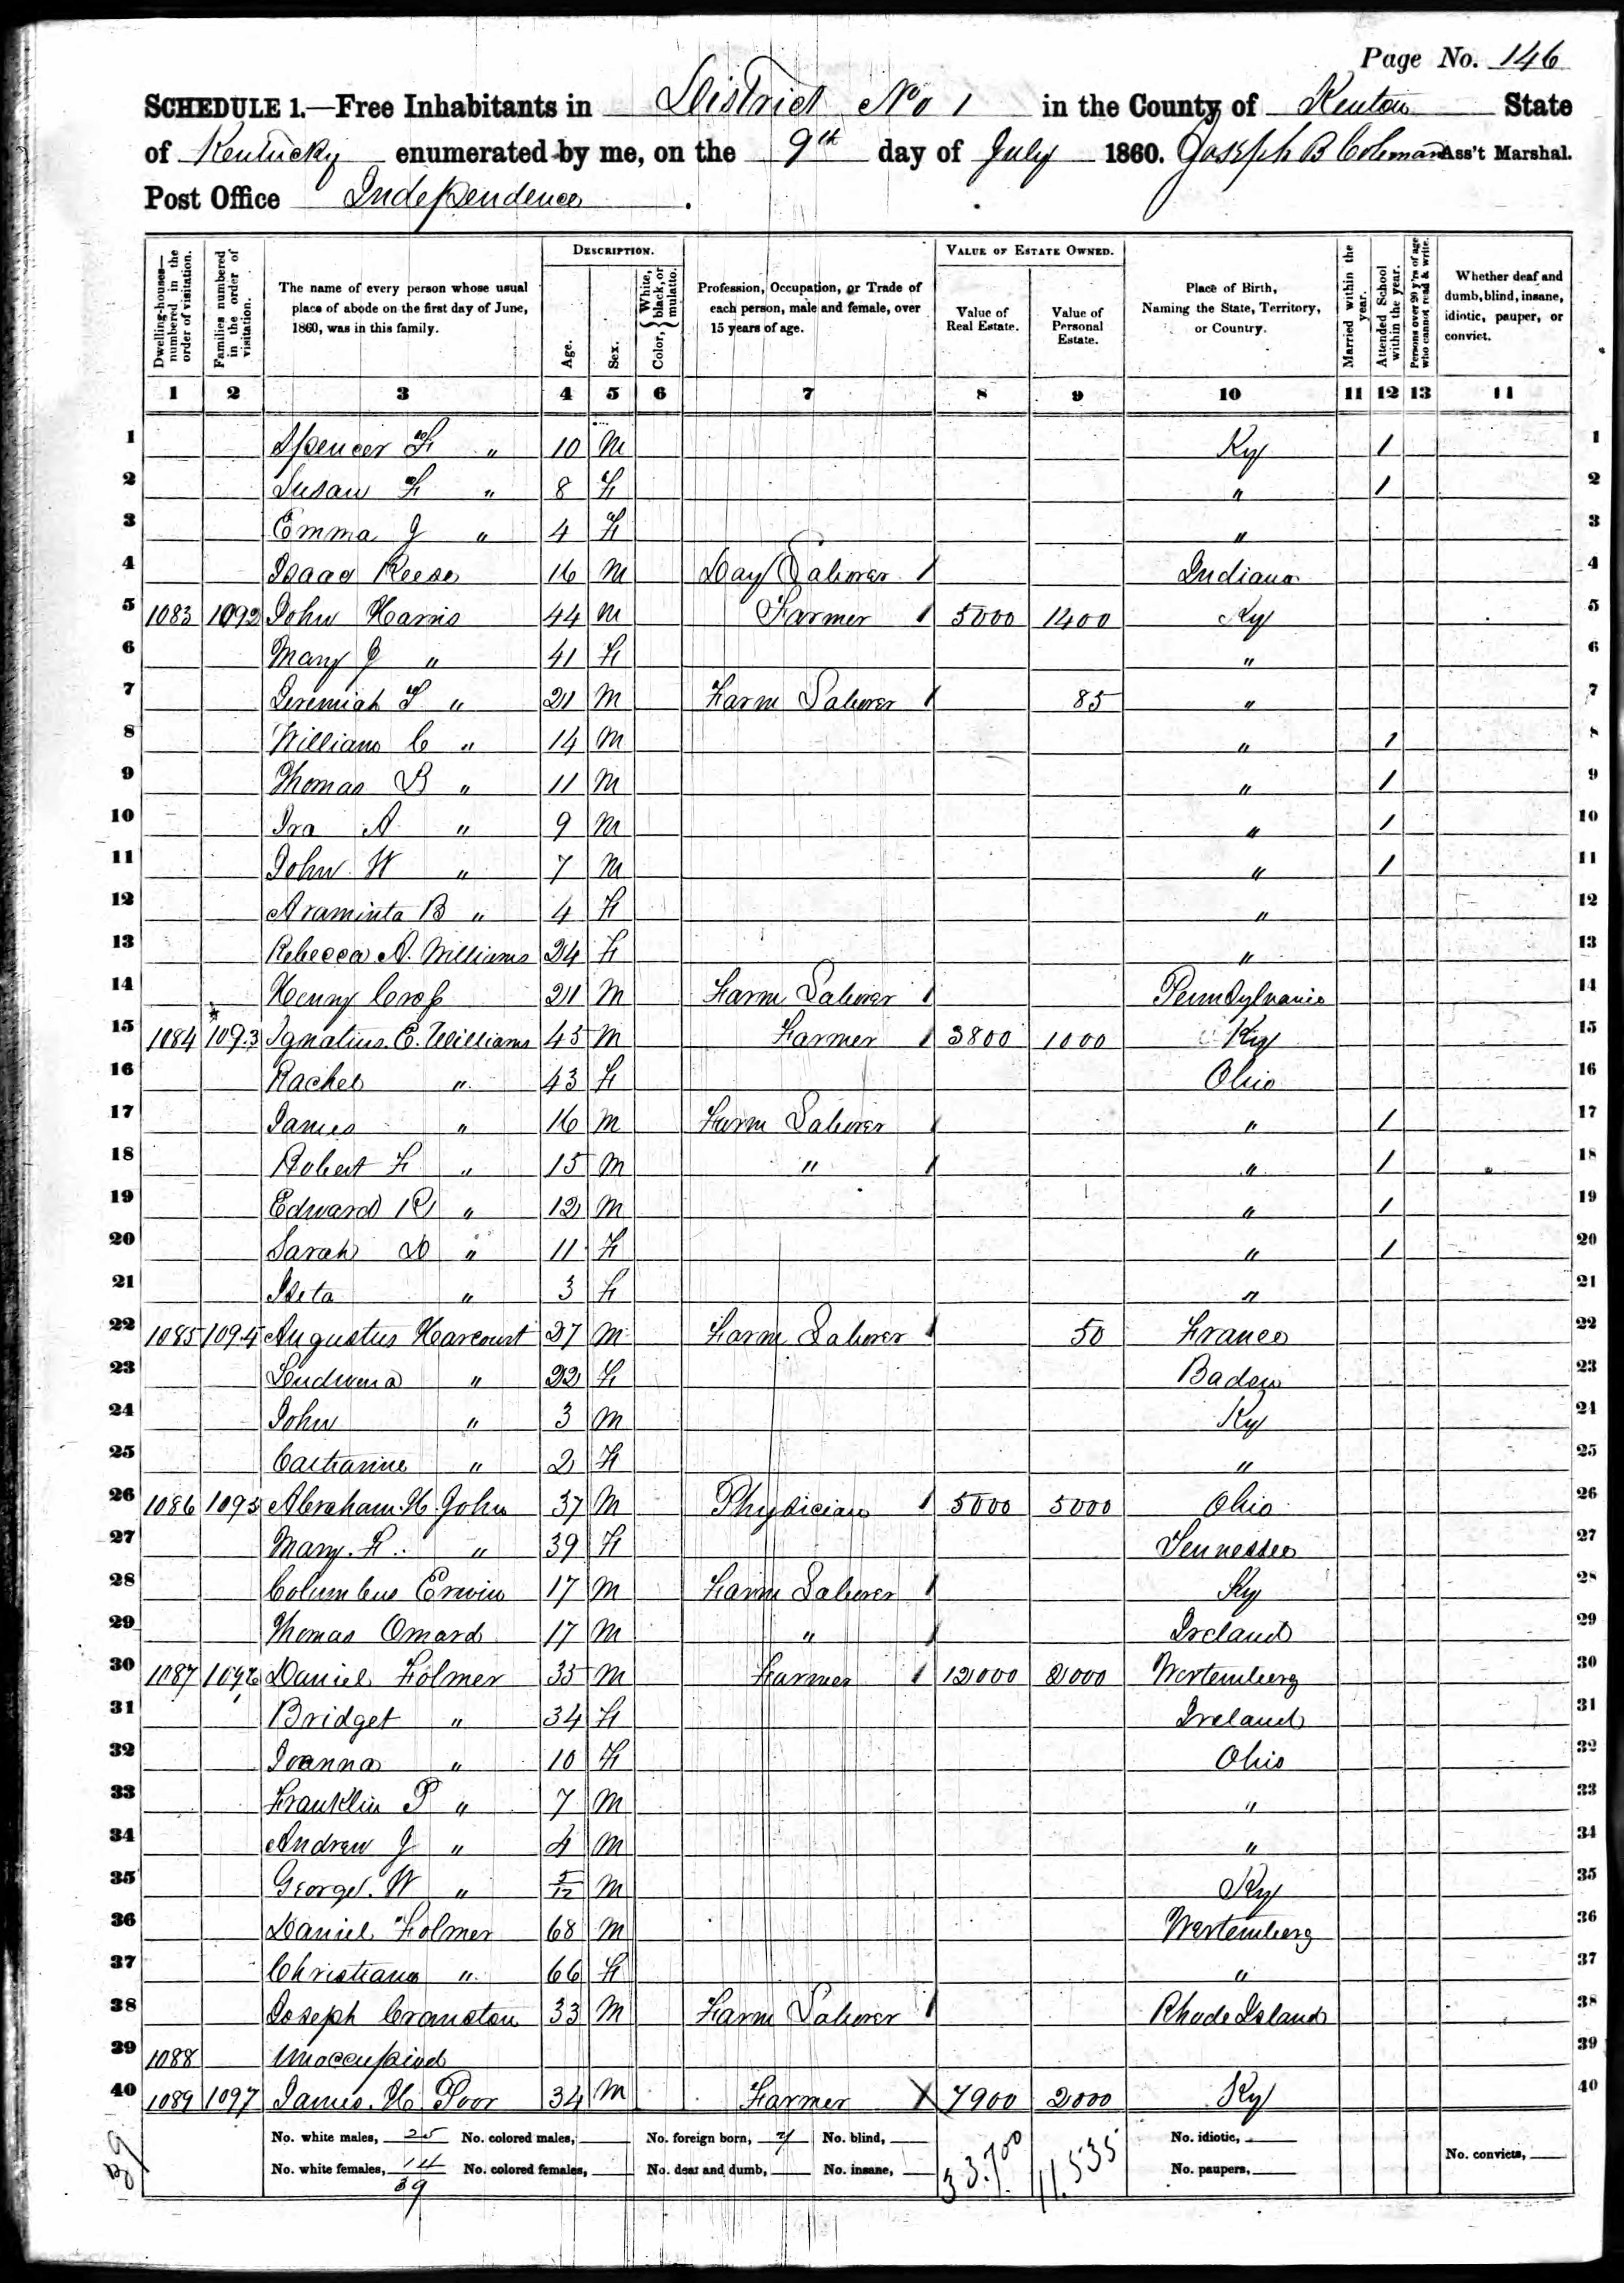 Page No. 146
SCHEDULE 1.—Free Inhabitants in District No 1 in the County of Kenton State
of Kentucky enumerated by me, on the 9th day of July 1860. Joseph B Coleman Ass't Marshal.
Post Office Independence.
Dwelling-houses—numbered in the order of visitation.
Families numbered in the order of visitation.
The name of every person whose usual place of abode on the first day of June, 1860, was in this family.
DESCRIPTION.
Age.
Sex.
Color, {White, black, or mulatto.
Profession, Occupation, or Trade of each person, male and female, over 15 years of age.
VALUE OF ESTATE OWNED.
Value of Real Estate.
Value of Personal Estate.
Place of Birth, Naming the State, Territory, or Country.
Married within the year.
Attended School within the year.
Persons over 20 y'rs of age who cannot read & write.
Whether deaf and dumb, blind, insane, idiotic, pauper, or convict.
1 2 3 4 5 6 7 8 9 10 11 12 13 14
1 Spencer F " 10 M Ky 1 1
2 Susan F " 8 F " 1 2
3 Emma J " 4 F " 3
4 Isaac Reese 16 M Day Laborer 1 Indiana 4
5 1083 1092 John Harris 44 M Farmer 1 5000 1400 Ky 5
6 Mary J " 41 F " 6
7 Jeremiah T " 21 M Farm Laborer 1 85 " 7
8 William C " 14 M " 1 8
9 Thomas B " 11 M " 1 9
10 Ira A " 9 M " 1 10
11 John W " 7 M " 1 11
12 Araminta B " 4 F " 12
13 Rebecca A. Williams 24 F " 13
14 Henny Cross 21 M Farm Laborer 1 Pennsylvania 14
15 1084 1093 Ignatius E. Williams 45 M Farmer 1 3800 1000 Ky 15
16 Rachel " 43 F Ohio 16
17 James " 16 M Farm Laborer 1 " 1 17
18 Robert F " 15 M " 1 " 1 18
19 Edward R " 12 M " 1 19
20 Sarah D " 11 F " 1 20
21 " 3 F " 21
22 1085 1094 Augustus Harcourt 27 M Farm Laborer 1 50 France 22
23 " 22 F Baden 23
24 John " 3 M Ky 24
25 Catharine " 2 F " 25
26 1086 1095 Abraham H. John 37 M Physician 1 5000 5000 Ohio 26
27 Mary F. " 39 F Tennessee 27
28 Columbus Erwin 17 M Farm Laborer 1 Ky 28
29 Thomas Omard 17 M " 1 Ireland 29
30 1087 1096 Daniel Folmer 35 M Farmer 1 12000 2000 Wertemberg 30
31 Bridget " 34 F Ireland 31
32 Joanna " 10 F Ohio 32
33 Franklin P " 7 M " 33
34 Andrew J " 4 M " 34
35 George W " 5/12 M Ky 35
36 Daniel Folmer 68 M Wertemberg 36
37 Christiana " 66 F " 37
38 Joseph Cranston 33 M Farm Laborer 1 Rhode Island 38
39 1088 Unoccupied 39
40 1089 1097 James H. Poor 34 M Farmer 1 7900 2000 Ky 40
No. white males, 25 No. colored males, No. foreign born, 7 No. blind, No. idiotic,
No. white females, 14 No. colored females, No. deaf and dumb, No. insane, No. paupers, No. convicts,
39
33.700
11.535
39